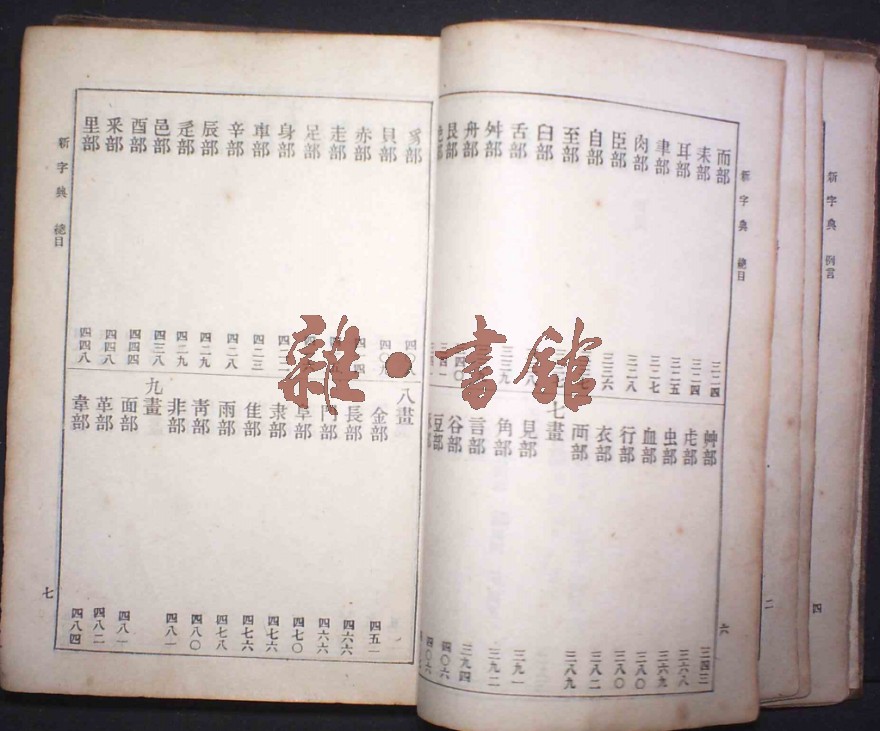 新字典 例言
四
二
新字典 總目
六
而部 三二四
耒部 三二四
耳部 三二五
聿部 三二七
肉部 三二八
臣部 三三六
自部
至部
臼部
舌部
舛部
舟部
艮部
艸部 三四三
虍部 三六八
虫部 三六九
血部 三八〇
行部 三八〇
衣部 三八二
襾部 三八九
七畫
見部 三九一
角部 三九二
言部 三九四
谷部 四〇六
豆部 四〇六
豸部
貝部
赤部
走部
足部
身部
車部 四二三
辛部 四二八
辰部 四二九
辵部 四二九
邑部 四三八
酉部 四四四
釆部 四四八
里部 四四八
八畫
金部 四五一
長部 四六六
門部 四六六
阜部 四七〇
隶部 四七六
隹部 四七六
雨部 四七八
靑部 四八〇
非部 四八一
九畫
面部 四八一
革部 四八二
韋部 四八四
新字典 總目
七
雜·書館